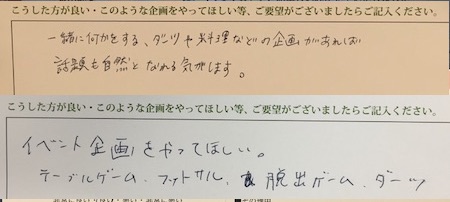 こうした方が良い・このような企画をやってほしい等、ご要望がございましたらご記入ください。
一緒に何かをする、ダーツや料理などの企画があれば
話題も自然となれる気がします。
こうした方が良い・このような企画をやってほしい等、ご要望がございましたらご記入ください。
イベント企画をやってほしい。
テーブルゲーム、フットサル、脱出ゲーム、ダーツ